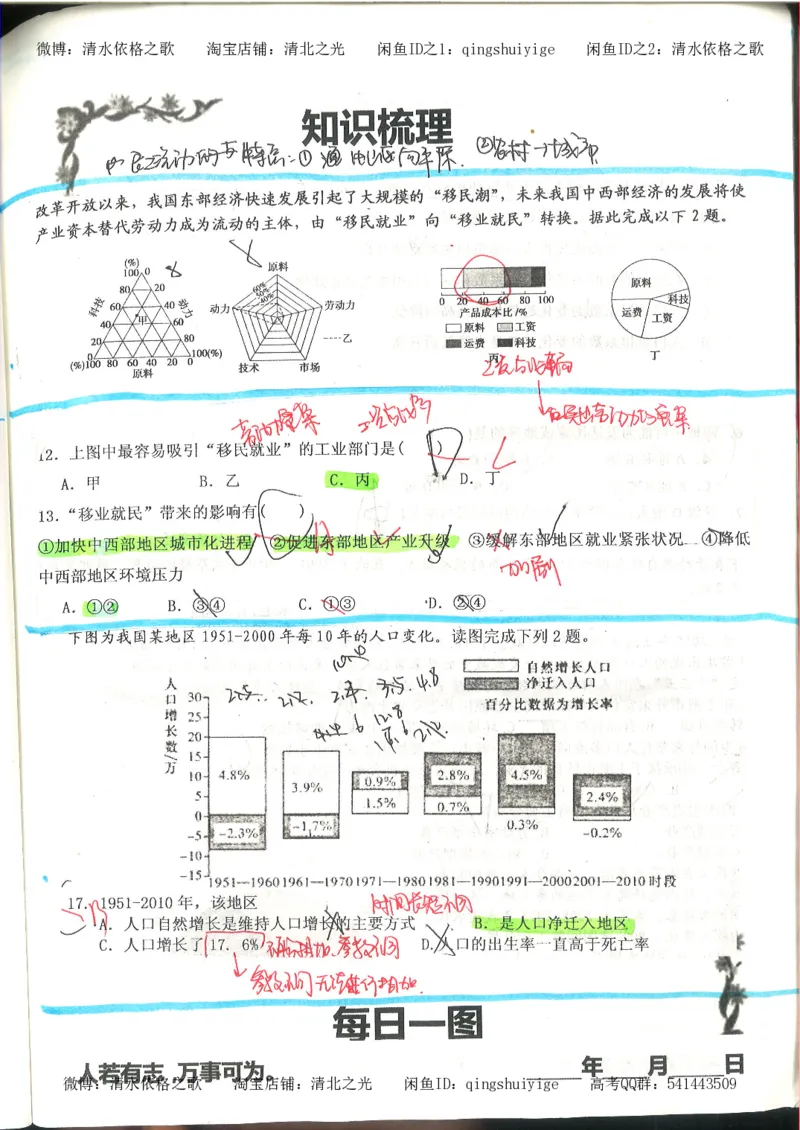 微博：清水依格之歌 淘宝店铺：清北之光 闲鱼ID之1：qingshuiyige 闲鱼ID之2：清水依格之歌
知识梳理
②农村→城市
改革开放以来，我国东部经济快速发展引起了大规模的“移民潮”，未来我国中西部经济的发展将使
产业资本替代劳动力成为流动的主体，由“移民就业”向“移业就民”转换。据此完成以下 2 题。
(%)
100 0
80 20
60 40
40 60
20 80
0 100(%)
(%)100 80 60 40 20 0
科技
动力
甲
原料
原料
60%
50%
40%
动力
劳动力
技术
市场
乙
0 20 40 60 80 100
产品成本比/%
原料 工资
运费 科技
丙
原料
科技
运费
工资
丁
12．上图中最容易吸引“移民就业”的工业部门是( )
A．甲 B．乙 C．丙 D．丁
13．“移业就民”带来的影响有( )
①加快中西部地区城市化进程 ②促进东部地区产业升级 ③缓解东部地区就业紧张状况 ④降低
加剧
中西部地区环境压力
A．①② B．③④ C．①③ D．②④
下图为我国某地区 1951-2000 年每 10 年的人口变化。读图完成下列 2 题。
自然增长人口
净迁入人口
百分比数据为增长率
人口增长数/万
30
25
20
15
10
5
0
-5
-10
-15
4.8%
-2.3%
3.9%
-1.7%
0.9%
1.5%
2.8%
0.7%
4.5%
0.3%
2.4%
-0.2%
1951—1960 1961—1970 1971—1980 1981—1990 1991—2000 2001—2010 时段
时间长短不同
17．1951-2010 年，该地区
A．人口自然增长是维持人口增长的主要方式 B．是人口净迁入地区
C．人口增长了 17.6% D．人口的出生率一直高于死亡率
每日一图
人若有志，万事可为。 年 月 日
微博：清水依格之歌 淘宝店铺：清北之光 闲鱼ID：qingshuiyige 高考QQ群：541443509